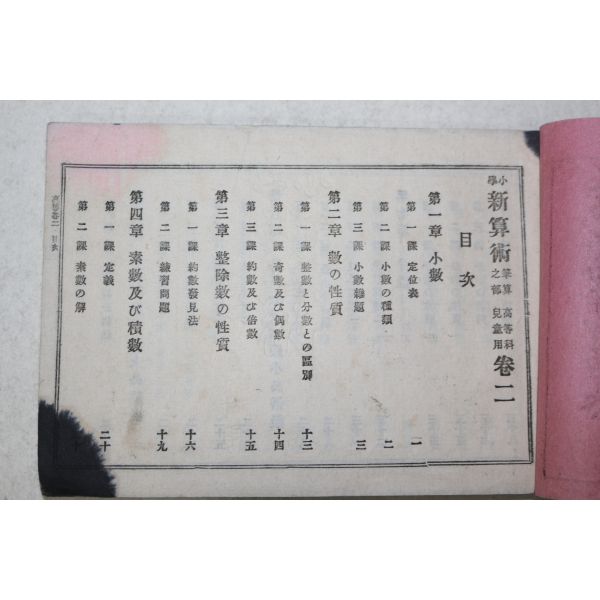 小學 新算術 筆算之部 高等科兒童用 卷二
目次
第一章 小數
第一課 定位表 一
第二課 小數の種類 二
第三課 小數雜題 三
第二章 數の性質
第一課 整數と分數との區別 十三
第二課 奇數及び偶數 十四
第三課 約數及び倍數 十五
第三章 整除數の性質
第一課 約數發見法 十六
第二課 練習問題 十九
第四章 素數及び積數
第一課 定義 二十
第二課 素數の解